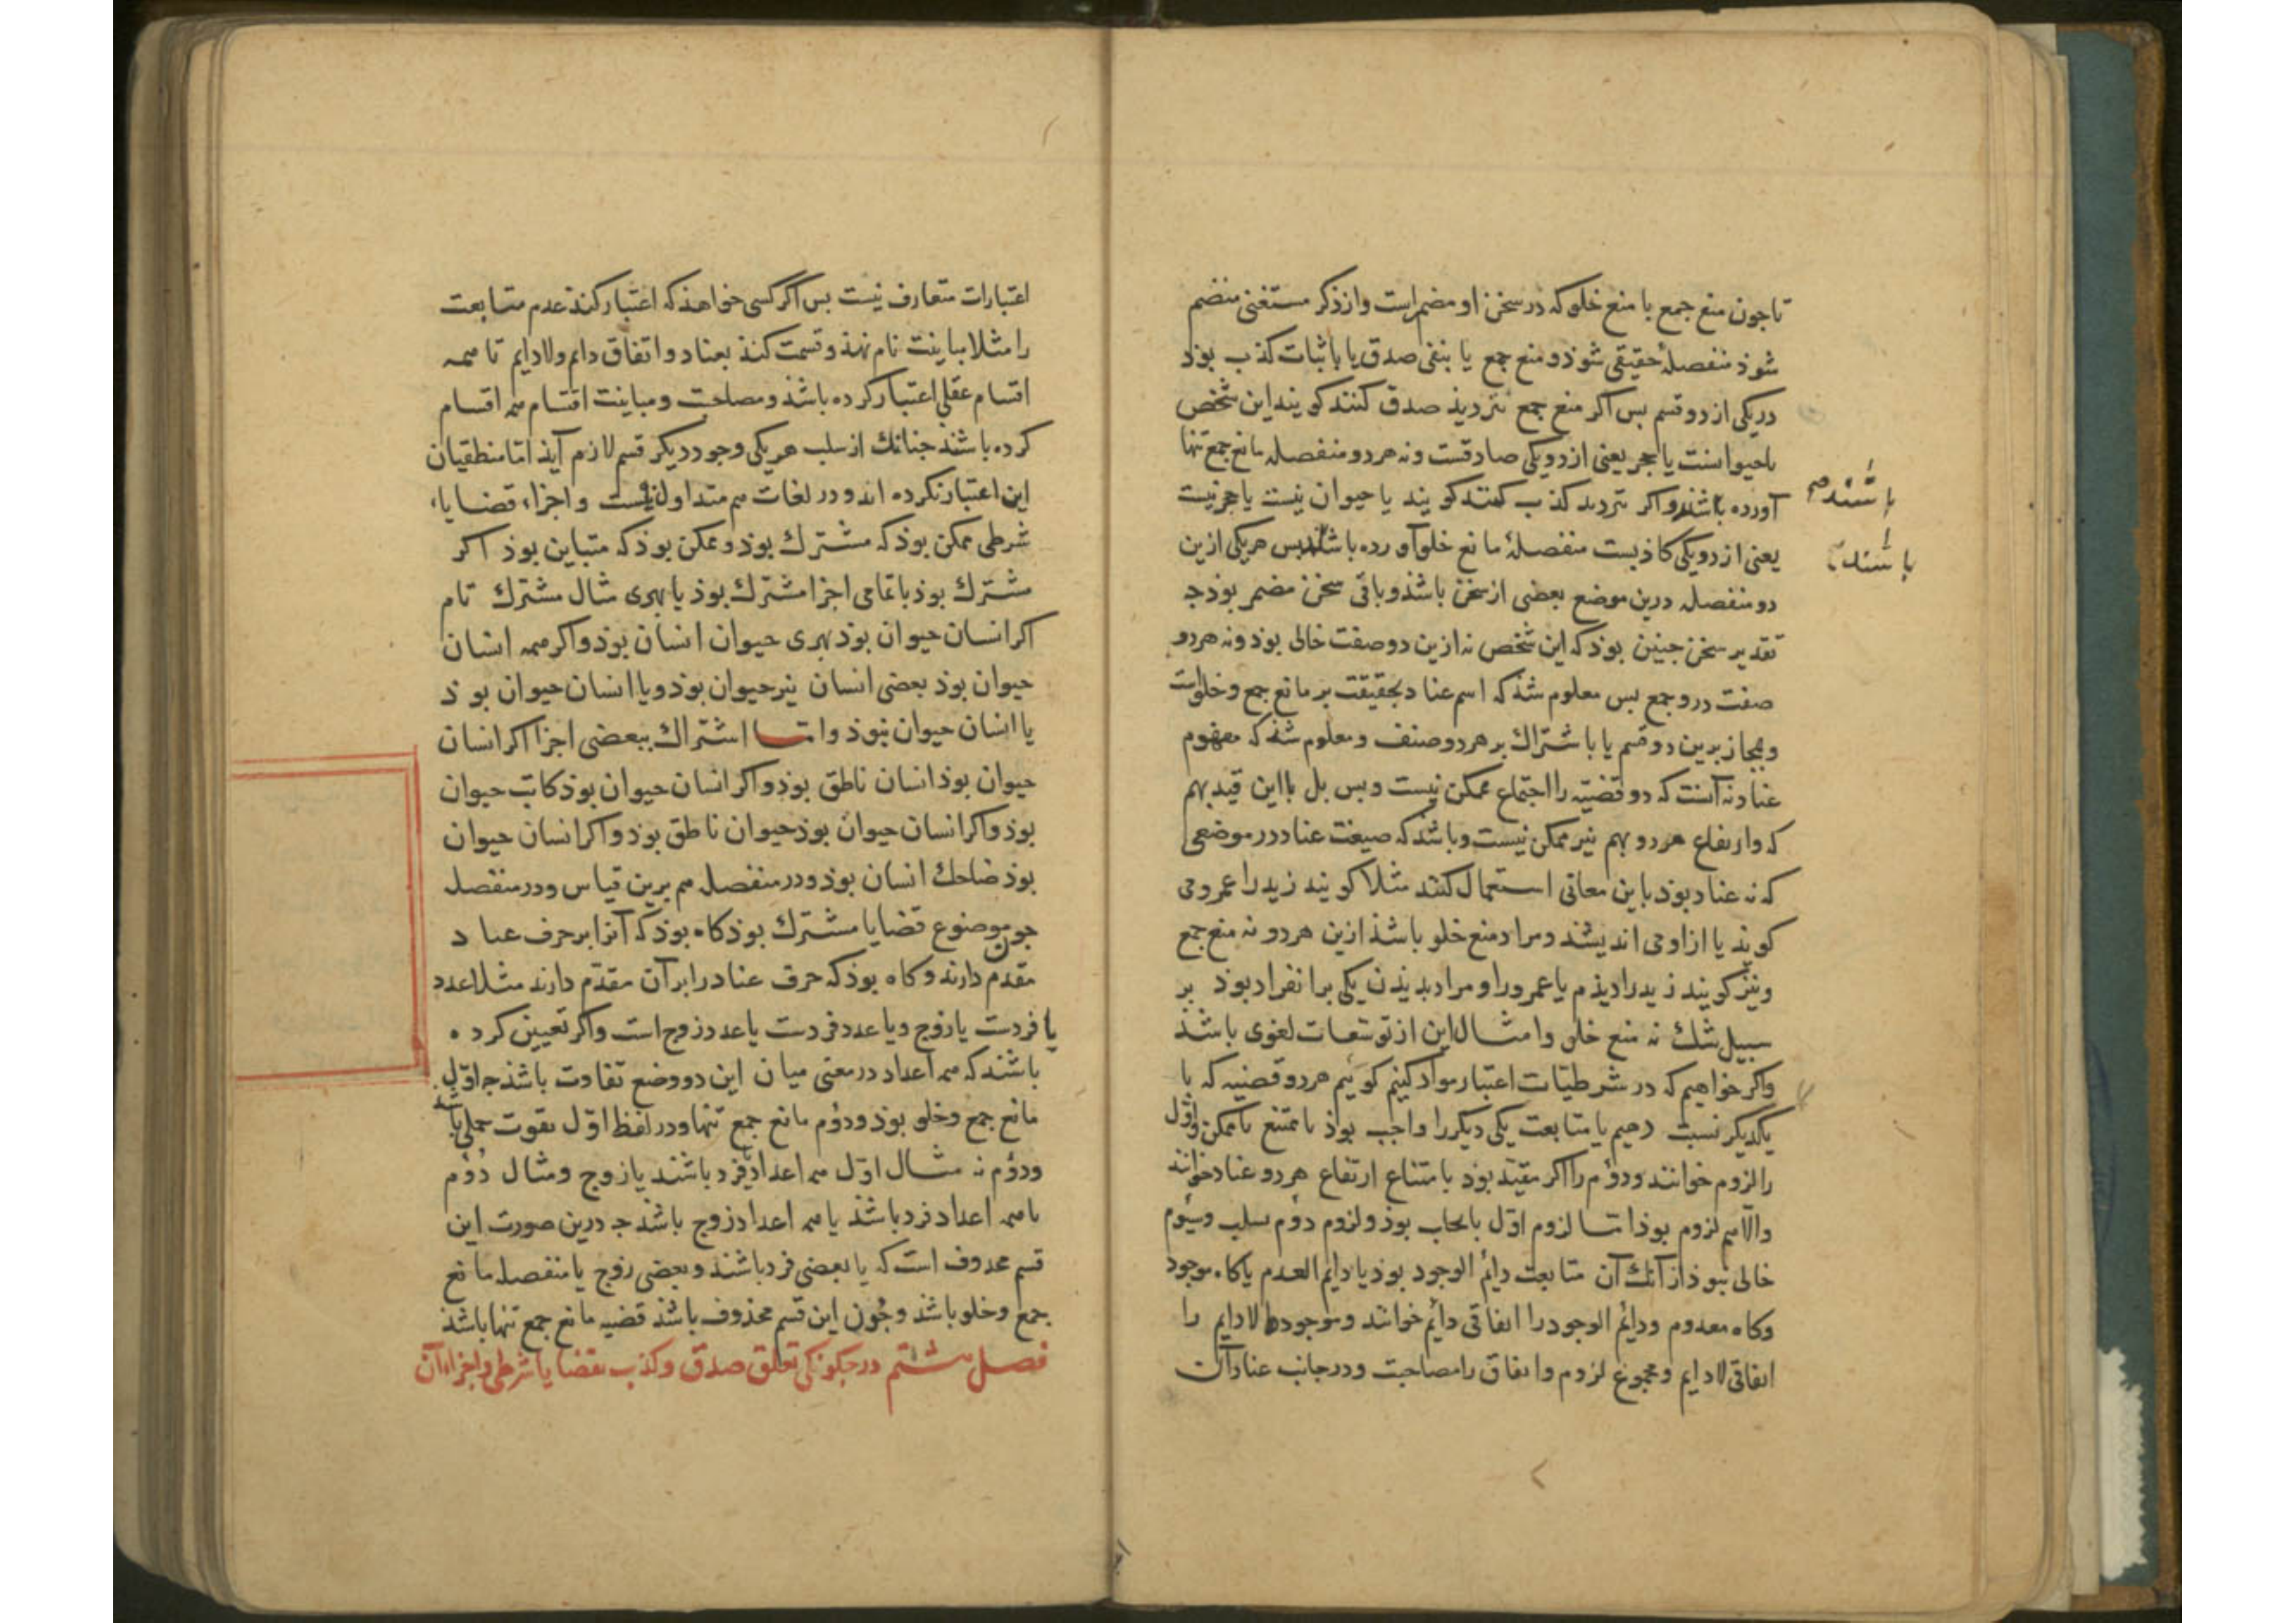 تا جون منع جمع با منع خلو که در سخن او مضمراست و از ذکر مستغنی منضم
شوذ منفصلهٔ حقیقی شوذ و منع جمع یا بنفی صدق یا باثبات کذب بوذ
در یکی از دو قسم بس اگر منع جمع بتردیذ صدق کنند کویند این شخص
یا حیوانست یا حجر یعنی ازدو یکی صادقست و نه هر دو منفصله مانع جمع تنها
آورده باشند و اکر بتردید کذب کنند کویند یا حیوان نیست یا حجر نیست
باشند صح
یعنی ازدو یکی کاذبست منفصلهٔ مانع خلو آورده باشند بس هر یکی ازین
باشند
دو منفصله درین موضع بعضی از سخن باشذ و باقی سخن مضمر بوذ جه
تقدیر سخن جنین بوذ که این شخص نه ازین دو صفت خالی بوذ و نه هر دو
صفت درو جمع بس معلوم شذ که اسم عناد بحقیقت بر مانع جمع و خلو است
و بمجاز برین دو قسم یا باشتراک بر هر دو صنف و معلوم شذ که مفهوم
عناد نه آنست که دو قضیّه را اجتماع ممکن نیست و بس بل با این قید بهم
که و ارتفاع هر دو بهم نیز ممکن نیست و باشذ که صیغت عناد در موضعی
که نه عناد بوذ باین معانی استعمال کنند مثلا کویند زید را عمرو می
کوید یا ازاو می اندیشد و مراد منع خلو باشذ ازین هر دو نه منع جمع
و نیز کویند زید را دیذم یا عمرو را و مراد بدیذن یکی بر انفراد بوذ بر
سبیل شک نه منع خلو و امثال این از توسّعات لغوی باشذ
و اکر خواهیم که در شرطیّات اعتبار مواد کنیم کوییم هر دو قضیه که با
یکدیکر نسبت دهیم یا متابعت یکی دیکر را واجب بوذ یا ممتنع یا ممکن و اوّل
را لزوم خوانند و دوُم را اکر مقیّد بوذ بامتناع ارتفاع هر دو عناد خوانند
و الّا هم لزوم بوذ امّا لزوم اوّل بایجاب بوذ و لزوم دوُم بسلب و سیُوم
خالی نبوذ از آنک آن متابعت دائم الوجود بوذ یا دایم العدم یا کاه موجود
و کاه معدوم و دائم الوجود را اتفاقی دایم خوانند و موجود لا دایم را
اتفاقی لا دایم و مجموع لزوم و اتفاق را مصاحبت و در جانب عناد آن
اعتبارات متعارف نیست بس اکر کسی خواهذ که اعتبار کنذ عدم متابعت
را مثلا مباینت نام نهذ و قسمت کنذ بعناد و اتفاق دایم و لا دایم تا همه
اقسام عقلی اعتبار کرده باشذ و مصاحبت و مباینت اقتسام همه اقسام
کرده باشند جنانک از سلب هر یکی وجود دیکر قسم لازم آیذ امّا منطقیان
این اعتبار نکرده اند و در لغات هم متداول نیست و اجزاء قضایاء
شرطی ممکن بوذ که مشترک بوذ و ممکن بوذ که متباین بوذ اکر
مشترک بوذ با تمامی اجزا مشترک بوذ یا ببهری مثال مشترک تام
اکر انسان حیوان بوذ بهری حیوان انسان بوذ و اکر همه انسان
حیوان بوذ بعضی انسان نیز حیوان بوذ و یا انسان حیوان بوذ
یا انسان حیوان نبوذ و امّا اشتراک ببعضی اجزا اکر انسان
حیوان بوذ انسان ناطق بوذ و اکر انسان حیوان بوذ کاتب حیوان
بوذ و اکر انسان حیوان بوذ حیوان ناطق بوذ و اکر انسان حیوان
بوذ ضاحک انسان بوذ و در منفصله هم برین قیاس و در منفصله
جون موضوع قضایا مشترک بوذ کاه بوذ که آنرا بر حرف عناد
مقدم دارند و کاه بوذ که حرف عناد را بر آن مقدّم دارند مثلا عدد
یا فردست یا زوج و یا عدد فردست یا عدد زوج است و اکر تعیین کرده
باشند که همه اعداد در معنی میان این دو وضع تفاوت باشذ جه اوّل
مانع جمع و خلو بوذ و دوُم مانع جمع تنها و در لفظ اوّل بقوت حملی باشد
و دوُم نه مثال اوّل همه اعداد یا فرد باشند یا زوج و مثال دوُم
یا همه اعداد فرد باشذ یا همه اعداد زوج باشذ جه درین صورت این
قسم محذوف است که یا بعضی فرد باشند و بعضی زوج یا منفصله مانع
جمع و خلو باشذ و جون این قسم محذوف باشذ قضیه مانع جمع تنها باشذ
فصل هشتم در جکونکی تعلق صدق و کذب بقضایا شرطی و اجزاء آن